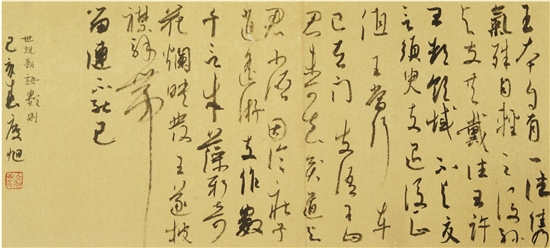 王本自有一往雋
氣殊自輕之後孫
与支共載往王許
王都領域不与交
言須臾支退後正
值王當行車
已在門支語王曰
君未可去貧道与
君小語因論莊子
逍遙游支作數
千言才藻新奇
花爛映發王遂披
襟解帶
留連不能已
世說新語數則
己亥春旭